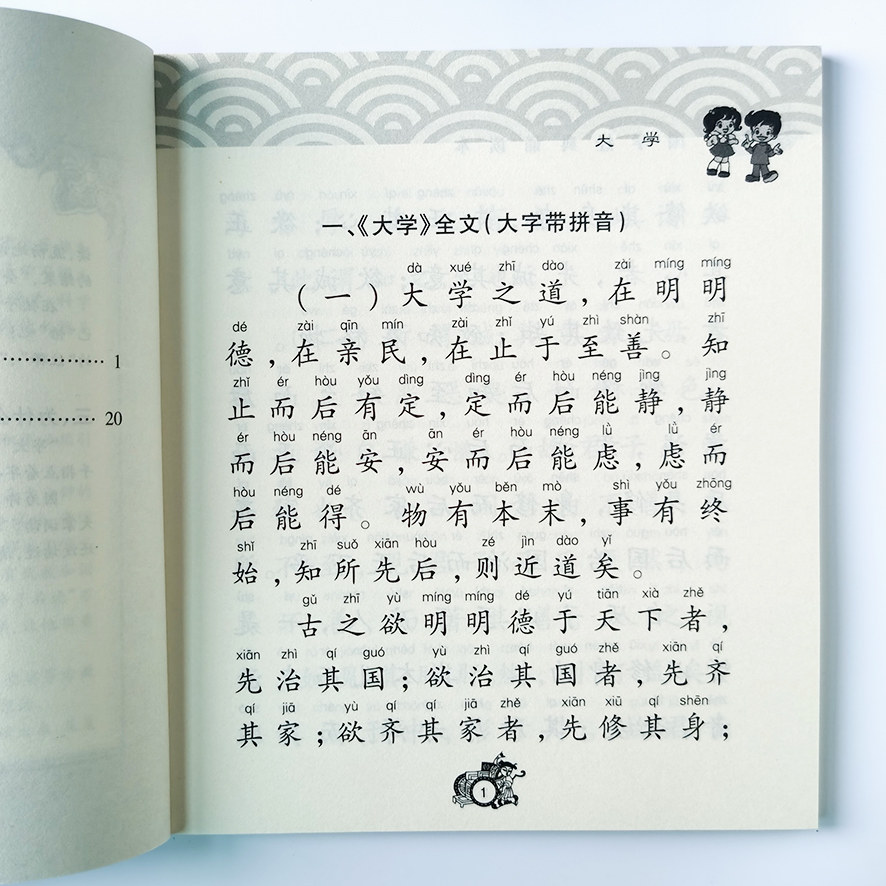 大 学
一、《大学》全文(大字带拼音)
dà xué zhī dào zài míng míng
(一)大学之道,在明明
dé zài qīn mín zài zhǐ yú zhì shàn zhī
德,在亲民,在止于至善。知
zhǐ ér hòu yǒu dìng dìng ér hòu néng jìng jìng
止而后有定,定而后能静,静
ér hòu néng ān ān ér hòu néng lǜ lǜ ér
而后能安,安而后能虑,虑而
hòu néng dé wù yǒu běn mò shì yǒu zhōng
后能得。物有本末,事有终
shǐ zhī suǒ xiān hòu zé jìn dào yǐ
始,知所先后,则近道矣。
gǔ zhī yù míng míng dé yú tiān xià zhě
古之欲明明德于天下者,
xiān zhì qí guó yù zhì qí guó zhě xiān qí
先治其国;欲治其国者,先齐
qí jiā yù qí qí jiā zhě xiān xiū qí shēn
其家;欲齐其家者,先修其身;
1
1
20